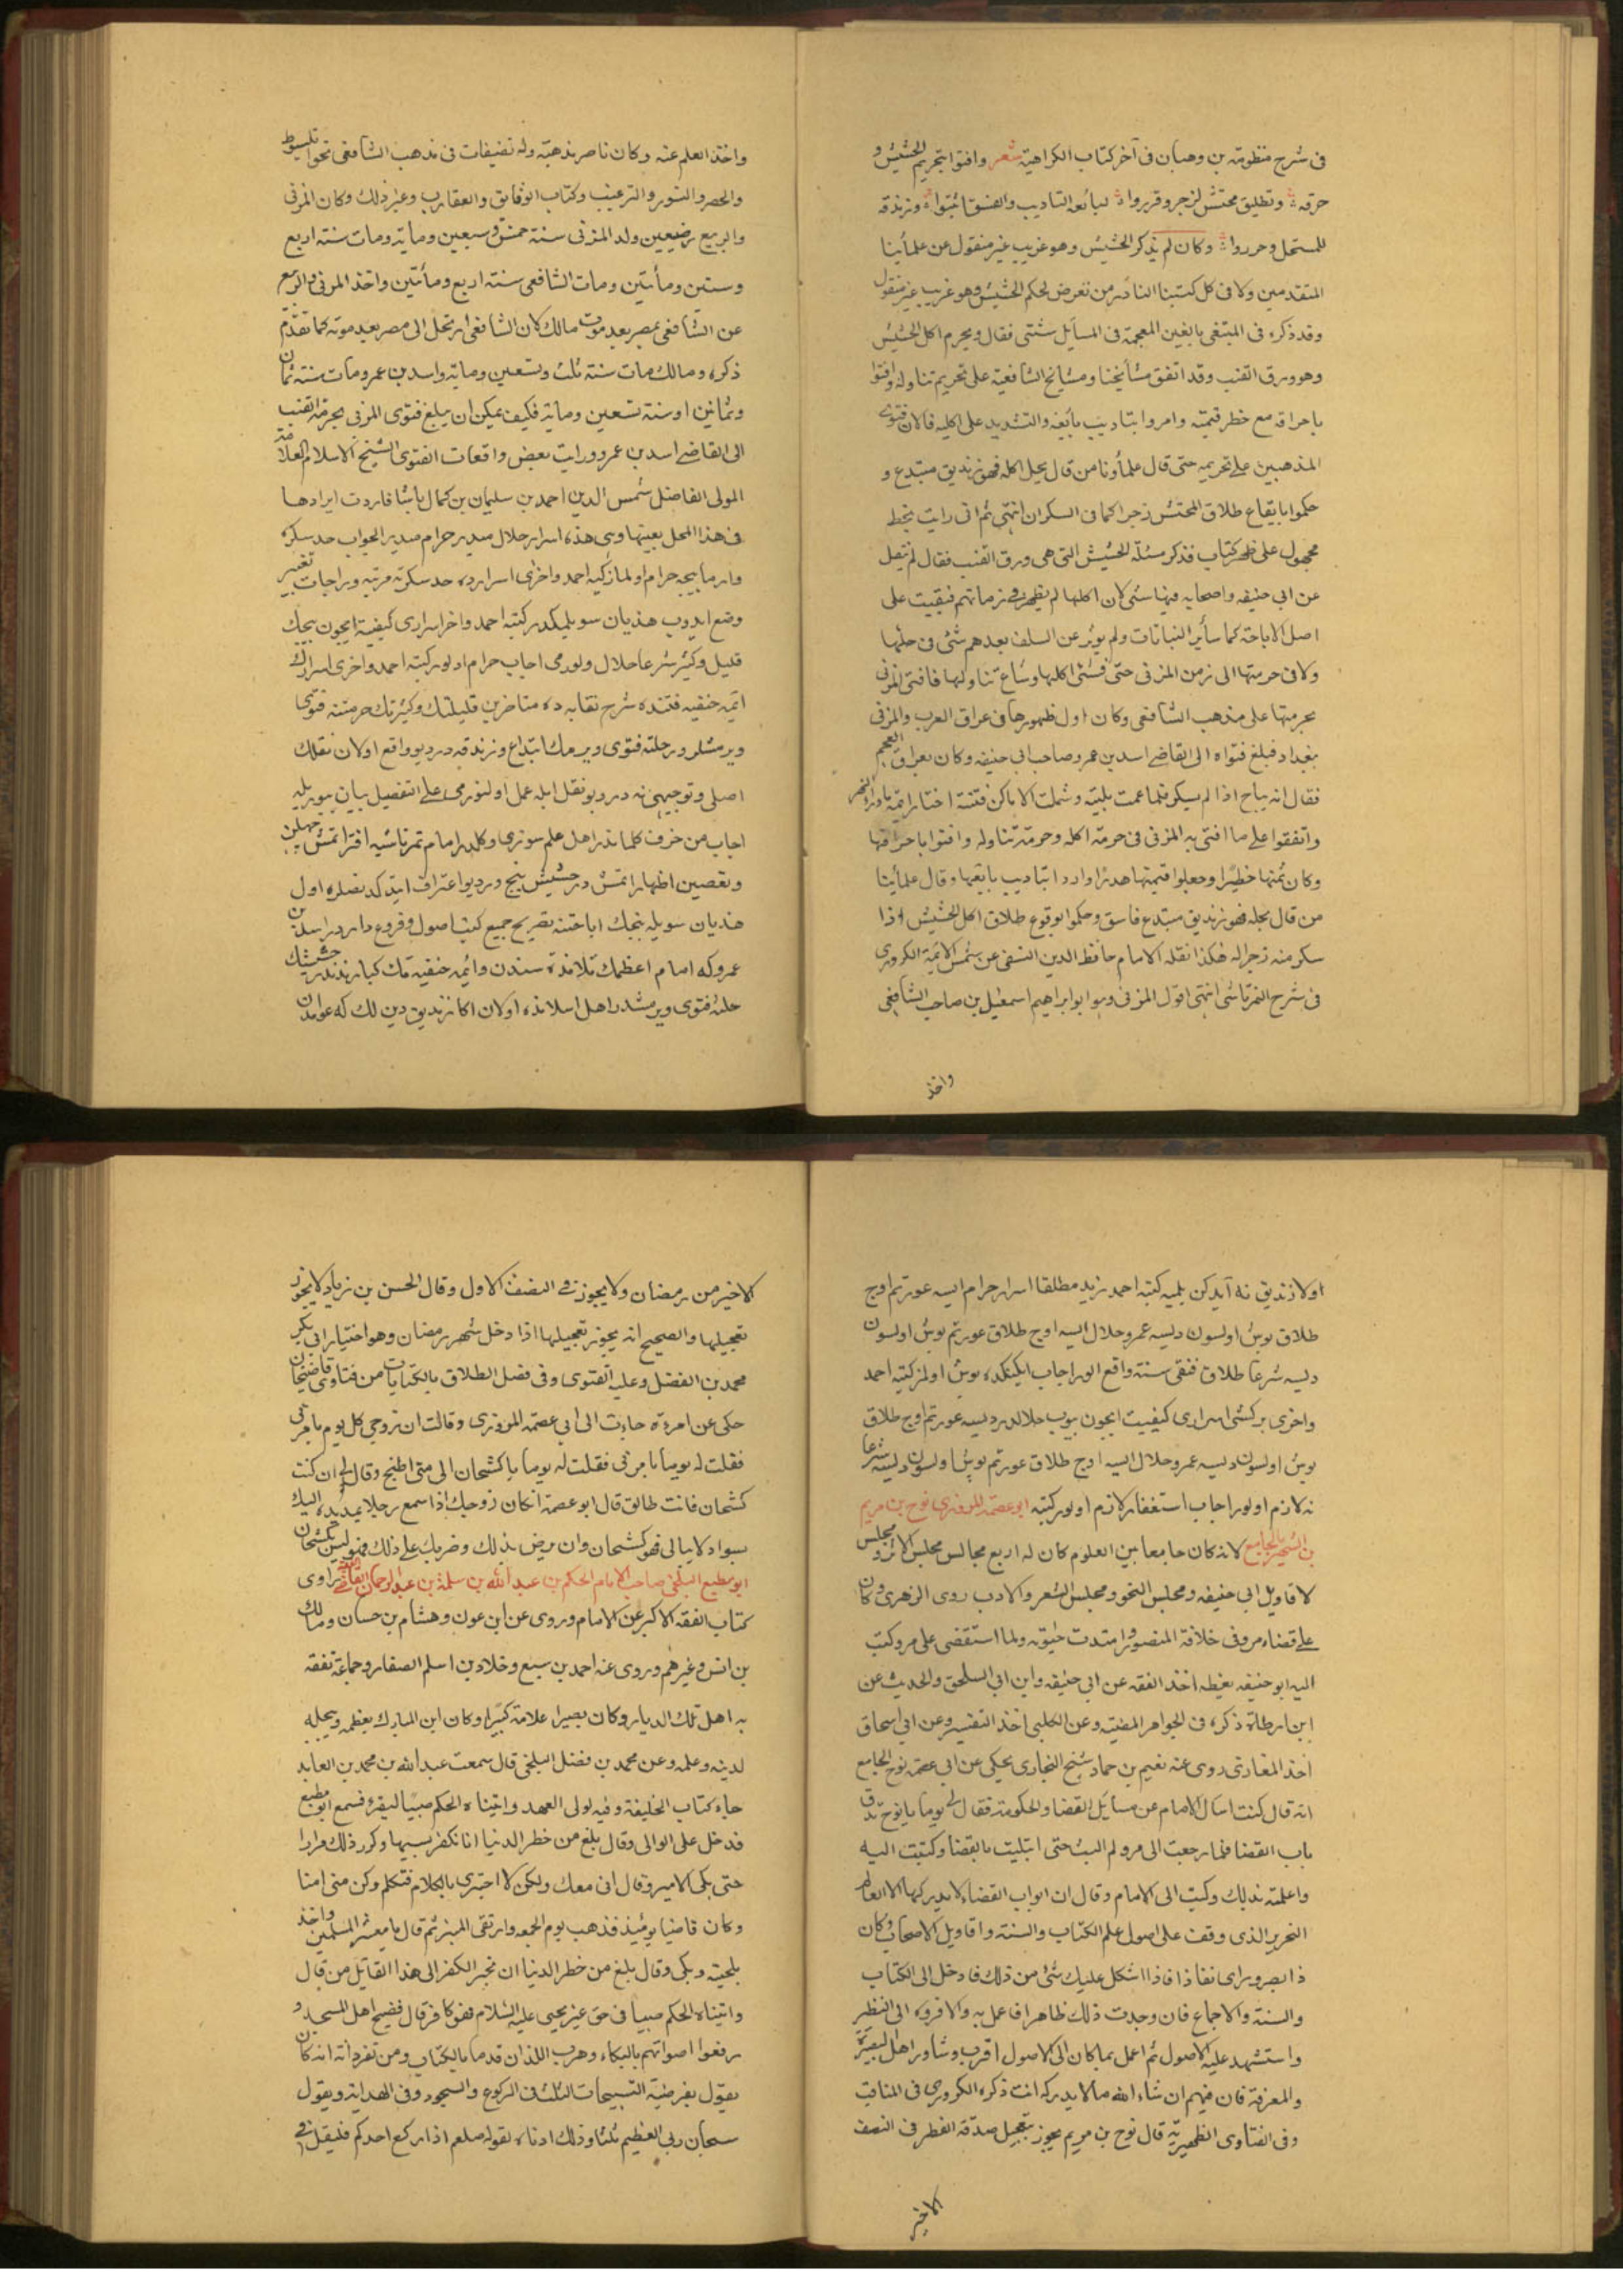 فى شرح منظومة بن وهبان فى آخر كتاب الكراهية شعر وافتوا بتحريم الحشيش و
حرقه وتطليق محتش لزجر وقرروا لبائعه التأديب والفسق اثبتوا وزندقه
للمستحل وحرروا وكان لم يذكر الحشيش وهو غريب غير منقول عن علمائنا
المتقدمين ولا فى كل كتبنا النادر من تعرض لحكم الحشيش وهو غريب غير منقول
وقد ذكره فى المبتغى بالغين المعجمة فى المسائل شتى فقال ويحرم اكل الحشيش
وهو ورق القنب وقد اتفق مشايخنا ومشايخ الشافعية على تحريم تناوله وافتوا
باحراقه مع خطر قيمته وامروا بتأديب بائعه والتشديد على اكليه فالان فتوى
المذهبين على تحريمه حتى قال علماؤنا من قال بحل اكله فهو زنديق مبتدع و
حكموا بايقاع طلاق المحتش زجرا كما فى السكران انتهى ثم انى رايت بخط
مجهول على ظهر كتاب فذكر مسئلة الحشيش التى هى ورق القنب فقال لم ينقل
عن ابى حنيفه واصحابه فيها شئ لان اكلها لم يظهر فى زمانهم فبقيت على
اصل الاباحة كما سائر النباتات ولم يؤثر عن السلف بعدهم شئ فى حلها
ولا فى حرمتها الى زمن المزنى حتى فشى اكلها وشاع تناولها فافتى المزنى
بحرمتها على مذهب الشافعى وكان اول ظهورها فى عراق العرب والمزنى
بغداد فبلغ فتواه الى القاضى اسد بن عمرو صاحب ابى حنيفه وكان بعراق العجم
فقال انه يباح اذا لم يسكر فلما عمت بليته وشملت الاماكن فتنته اختار ائمة ماوراء النهر
واتفقوا على ما افتى به المزنى فى حرمة اكله وحرمة تناوله وافتوا باحراقها
وكان ثمنها خطيرا وجعلوا قيمتها هدرا وادوا بتأديب بايعها وقال علمائنا
من قال بحله فهو زنديق مبتدع فاسق وحكموا بوقوع طلاق اكل الحشيش اذا
سكر منه زجرا له هكذا نقله الامام حافظ الدين النسفى عن شمس الائمة الكردرى
فى شرح التمرتاشى انتهى اقول المزنى وهو ابو ابراهيم اسمعيل بن صاحب الشافعى
واخذ
واخذ العلم عنه وكان ناصر مذهبه وله تصنيفات فى مذهب الشافعى نحو المبسوط
والحصر والنثور والترغيب وكتاب الوثايق والعقارب وغير ذلك وكان المزنى
والربيع رضيعين ولد المزنى سنة خمس وسبعين وماية ومات سنة اربع
وستين ومأتين ومات الشافعى سنة اربع ومأتين واخذ المزنى والربيع
عن الشافعى بمصر بعد موت مالك كان الشافعى ارتحل الى مصر بعد موته كما تقدم
ذكره ومالك مات سنة ثلث وتسعين وماية واسد بن عمرو مات سنة ثمان
وثمانين او سنة تسعين وماية فكيف يمكن ان يبلغ فتوى المزنى بحرمة القنب
الى القاضى اسد بن عمرو ورايت بعض واقعات الفتوى الشيخ الاسلام العلامة
المولى الفاضل شمس الدين احمد بن سليمان بن كمال باشا فاردت ايرادها
فى هذا المحل بعينها وهى هذه اسرار حلال ميدر حرام ميدر الجواب حد سكره
وارمايجه حرام اولماز كتبه احمد واخرى اسرارده حد سكر نه مرتبه در اجاب تغيير
وضع ايدوب هذيان سويلمكدر كتبه احمد واخر اسرارى كيفيت ايچون ييمك
قليل وكثير شرعا حلال اولورمى اجاب حرام اولور كتبه احمد واخرى اسرارك
ائمه حنفيه قتنده شرح نقايه ده متاخرين قليلنك وكثيرنك حرمتنه فتوى
ويرمشلردر حلنه فتوى ويرمك ابتداع وزندقه در ديو واقع اولان نقلك
اصلى وتوجيهى نه در وبو نقل ايله عمل اولنورمى على التفصيل بيان بيوريله
اجاب من خرف كلماتدر اهل علم سوزى دكلدر امام تمرتاشيه افترا ايتمش جهلن
وتعصبن اظهار ايتمش در حشيش بنج در ديو اعتراف ايتدكدنصكره اول
هذيان سويله بنجك اباحتنه تصريح جميع كتب اصول وفروع دار دراسد بن
عمرو كه امام اعظمك تلامذه سندن وائمه حنفيه نك كبارندندر حشيشك
حلنه فتوى ويرمشدر اهل اسلامده اولان اكا زنديق دين لك كه عواند
اولا زنديق نه ايدكن بلميه كتبه احمد زيد مطلقا اسرار حرام ايسه عورتم اوچ
طلاق بوش اولسون ديسه عمرو حلال ايسه اوچ طلاق عورتم بوش اولسون
ديسه شرعا طلاق قنقى سنه واقع الور اجاب ايكينكده بوش اولمز كتبه احمد
واخرى بر كشى اسرارى كيفيت ايچون ييوب حلالدر ديسه عورتم اوچ طلاق
بوش اولسون ديسه عمرو حلال ايسه اوچ طلاق عورتم بوش اولسون ديسه شرعا
نه لازم اولور اجاب استغفار لازم اولور كتبه ابو عصمة المروزى نوح بن مريم
بن الشهير بالجامع لانه كان جامعا بين العلوم كان له اربع مجالس مجلس الاثر ومجلس
لاقاويل ابى حنيفه ومجلس النحو ومجلس الشعر والادب روى الزهرى وكان
على قضاء مرو فى خلافة المنصور وامتدت حيوته ولما استقضى على مرو كتب
اليه ابو حنيفه يعظه اخذ الفقه عن ابى حنيفه وابن ابى ليلى والحديث عن
ابن ارطاة ذكره فى الجواهر المضيئه وعن الكلبى اخذ التفسير وعن ابى اسحاق
اخذ المغازى روى عنه نعيم بن حماد شيخ البخارى يحكى عن ابى عصمة نوح الجامع
انه قال كنت اسأل الامام عن مسائل القضا والحكومة فقال لى يوما يا نوح تدق
باب القضا فلما رجعت الى مرو لم البث حتى ابتليت بالقضا وكتبت اليه
واعلمته بذلك وكتب الى الامام وقال ان ابواب القضاء لا يدركها الا العالم
النحرير الذى وقف على اصول علم الكتاب والسنة واقاويل الاصحاب وكان
ذا بصر وراى نفاذ فاذا اشكل عليك شئ من ذلك فادخل الى الكتاب
والسنة والاجماع فان وجدت ذلك ظاهرا فاعمل به والا فرده الى النظير
واستشهد عليه الاصول ثم اعمل بما كان الى الاصول اقرب وشاور اهل البصيرة
والمعرفة فان فيهم ان شاء الله مالا يدركه انت ذكره الكردرى فى المناقب
وفى الفتاوى الظهيرية قال نوح بن مريم يجوز تعجيل صدقة الفطر فى النصف
الاخير
الاخير من رمضان ولا يجوز فى النصف الاول وقال الحسن بن زياد لا يجوز
تعجيلها والصحيح انه يجوز تعجيلها اذا دخل شهر رمضان وهو اختيار ابى بكر
محمد بن الفضل وعليه الفتوى وفى فصل الطلاق بالكنايات من فتاوى قاضيخان
حكى عن امرءة جاءت الى ابى عصمة المروزى وقالت ان زوجى كل يوم يامرنى
فقلت له يوما يامرنى فقلت له يوما يا كشحان الى متى اطبخ وقال لى ان كنت
كشحان فانت طالق قال ابو عصمة ان كان زوجك اذا سمع رجلا يمد يده اليك
بسوء ولا يبالى فهو كشحان وان مرض بذلك وضربك على ذلك فهو ليس كشحان
ابو مطيع البلخى صاحب الامام الحكم بن عبد الله بن سلمة بن عبد الرحمن القاضى الفقيه راوى
كتاب الفقه الاكبر عن الامام وروى عن ابن عون وهشام بن حسان ومالك
بن انس وغيرهم وروى عنه احمد بن سبع وخلاد بن اسلم الصفار وجماعة تفقه
به اهل تلك الديار وكان بصيرا علامة كبيرا وكان ابن المبارك يعظمه ويجله
لدينه وعلمه وعن محمد بن فضل البلخى قال سمعت عبد الله بن محمد بن العابد
جاء كتاب الخليفة وفيه لولى العهد واتيناه الحكم صبيا ليقرء فسمع ابو مطيع
فدخل على الوالى وقال بلغ من خطر الدنيا انا نكفر بسببها وكرر ذلك مرارا
حتى بكى الامير وقال انى معك ولكن لا اجترى بالكلام فتكلم وكن منى امنا
وكان قاضيا يومئذ فذهب يوم الجمعه وارتقى المنبر ثم قال يا معشر المسلمين واخذ
بلحيته وبكى وقال بلغ من خطر الدنيا ان نجر الكفر الى هذا القائل من قال
واتيناه الحكم صبيا فى حق غير يحيى عليه السلام فهو كافر قال فضج اهل المسجد و
رفعوا اصواتهم بالبكاء وهرب اللذان قدما بالكتاب ومن تفرداته انه كان
يقول بفرضية التسبيحات الثلث فى الركوع والسجود وفى الهداية ويقول
سبحان ربى العظيم ثلثا وذلك ادناه لقوله صلعم اذا ركع احدكم فليقل فى